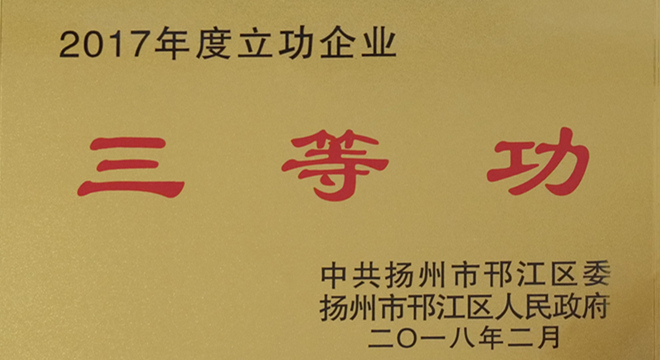 2017年度立功企业
三等功
中共扬州市邗江区委
扬州市邗江区人民政府
二〇一八年二月